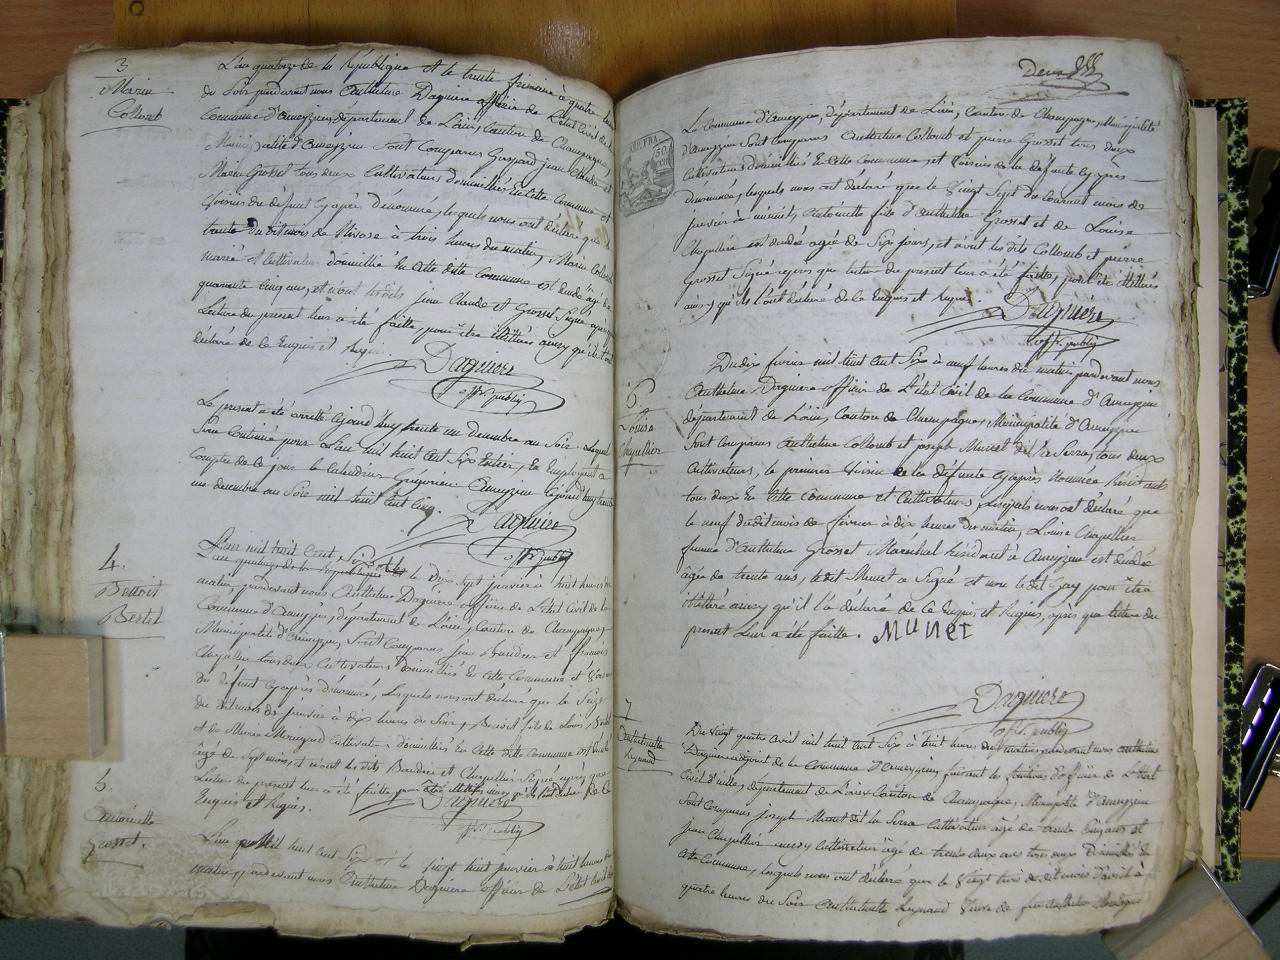 3
Marie
Collomb
L'an quatorze de la République et le trente frimaire à quatre heures
du soir pardevant nous Anthelme Daguiere officier de l'état Civil de la
Commune d'Ameyzieu, département de L'ain, Canton de Champagne,
Municipalité d'Ameyzieu Sont Comparus Gaspard jean Claude et
Grosset tous deux Cultivateurs domiciliés En Cette Commune et
Voisins du défunt Cyaprès Dénommé, lesquels nous ont déclaré que
trente du dit mois de Nivose à trois heures du matin, Marie Collomb
mariée et Cultivatrice domicilié En Cette ditte Commune est décédé âgé de
quarante Cinq ans, et n'ont les dits jean Claude et Grosset Signé après
Lecture du present leur a été faitte, pour être
déclaré de Ce Enquis et Requis.
Daguiere
off. public
Le present a été arretté Cejourd'huy trente un decembre au Soir
Sera Continué pour L'an mil huit Cent Six Entier,
Compter de Ce jour le Calendrier Gregorien Ameyzieu Cejourd'huy trente
un decembre au Soir mil huit Cent Cinq.
Daguiere
off. public
4.
Benoit
Bertet
L'an mil huit Cent Six
L'an quatorze de la République et le dix Sept janvier à huit heures du
matin, pardevant nous Anthelme Daguiere officier de l'état Civil de la
Commune d'Ameyzieu, département de L'ain, Canton de Champagne,
Municipalité d'Ameyzieu, Sont Comparus jean Baudrer et françois
Chapellier tous deux Cultivateurs domiciliés En Cette Commune et Voisins
du défunt Cyaprès Dénommé, lesquels nous ont déclaré que le Seize
du dit mois de janvier à dix heures du Soir, Benoit fils de Louis Bertet
et de Marie Cultivateurs domiciliés En Cette ditte Commune est décédé
âgé de Sept mois, et n'ont les dits Baudrer et Chapellier Signé après que
Lecture du present leur a été faitte pour être ainsy qu'ils l'ont déclaré de Ce
Enquis et Requis.
Daguiere
off. public
5.
Antoinette
Grosset.
L'an mil huit Cent Six et le Vingt huit janvier à huit heures du
matin, pardevant nous Anthelme Daguiere officier de l'état Civil de
Deux
La Commune d'Ameyzieu, département de L'ain, Canton de Champagne, Municipalité
d'Ameyzieu Sont Comparus, Anthelme Collomb et pierre Grosset tous deux
Cultivateurs domiciliés En Cette Commune et Voisins de la defunte Cyaprès
dénommée, lesquels nous ont déclaré que le Vingt Sept du Courant mois de
janvier à minuit, Antoinette fille d'Anthelme Grosset et de Louise
Chapellier est décédé agée de Six jours, et n'ont les dits Collomb et pierre
Grosset Signé après que lecture du present leur a été faitte, pour être
ainsy qu'ils l'ont déclaré de Ce Enquis et Requis.
Daguiere
off. public
6
Louise
Chapellier
Du dix fevrier mil huit Cent Six à neuf heures du matin pardevant nous
Anthelme Daguiere officier de L'état Civil de la Commune d'Ameyzieu
département de L'ain, Canton de Champagne, Municipalité d'Ameyzieu
Sont Comparus Anthelme Collomb et joseph Munet dit la Serraz tous deux
Cultivateurs, le premier Voisin de la défunte Cyaprès Nommée Résidents
tous deux En Cette Commune et Cultivateurs, Lesquels nous ont déclaré que
le neuf du dit mois de février à dix heures du matin, Louise Chapellier
femme d'Anthelme Grosset Maréchal Résidant à Ameyzieu est décédé
âgée de trente ans, le dit Munet a Signé et non le dit pour être
illitéré ainsy qu'il l'a déclaré de Ce Enquis et Requis, après que lecture du
present Leur a été faitte.
MUNET
Daguiere
off. public
7
Anthelmette
Reynaud
Du Vingt quatre avril mil huit Cent Six à huit heures du matin pardevant nous Anthelme
Daguiere adjoint de la Commune d'Ameyzieu, faisant les fonctions d'officier de L'état
Civil d'icelles, département de L'ain Canton de Champagne, Municipalité d'Ameyzieu
Sont Comparus joseph Munet dit la Serra Cultivateur âgé de trente Cinq ans et
jean Chapellier aussy Cultivateur âgé de trente deux ans tous deux Domiciliés En
Cette Commune, lesquels nous ont déclaré que le Vingt trois du dit mois d'avril à
quatre heures du Soir Anthelmette Reynaud Veuve de